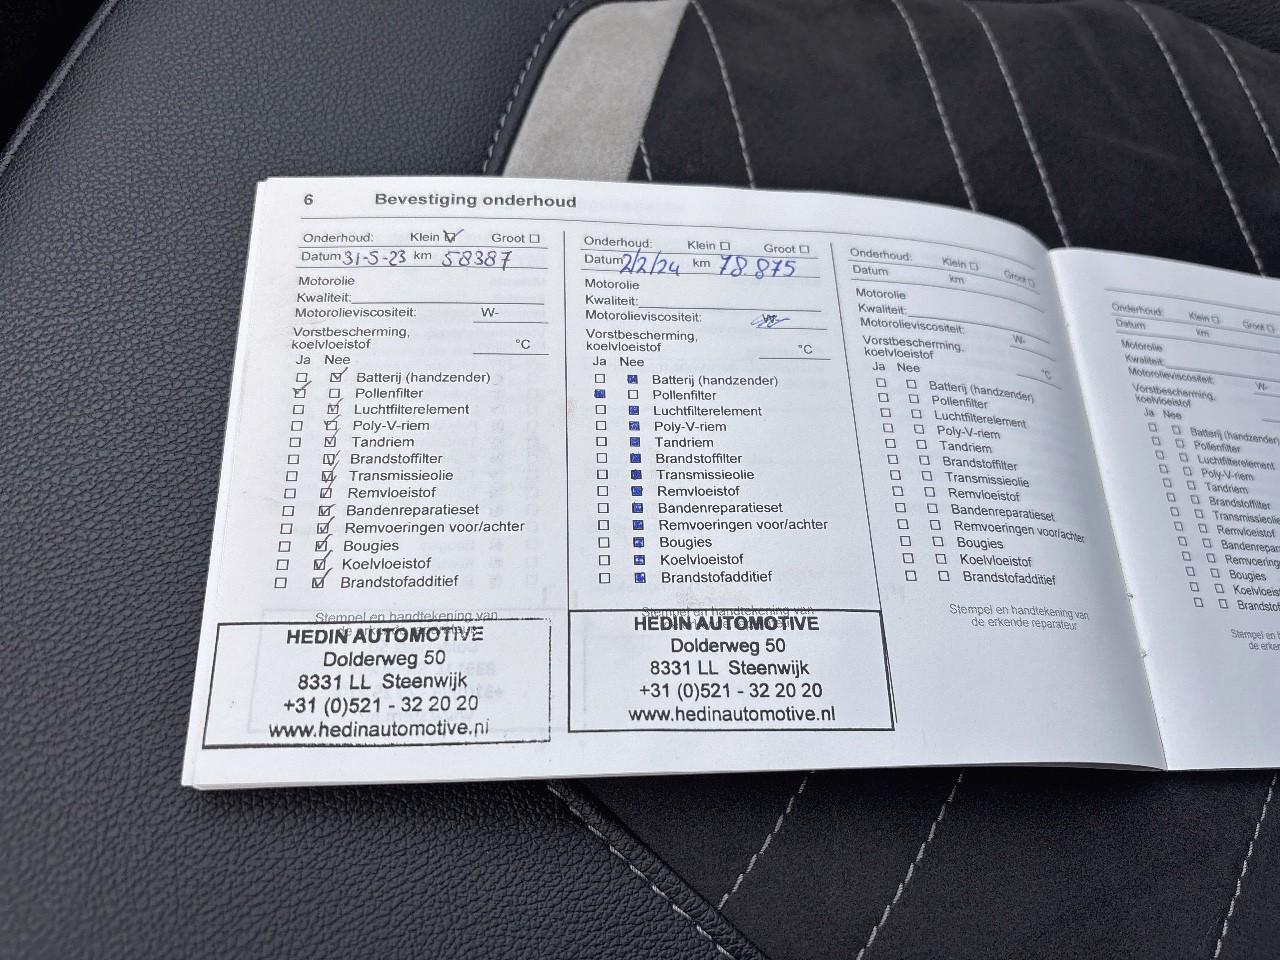 6 Bevestiging onderhoud
Onderhoud: Klein ☑ Groot ☐
Datum 31-5-23 km 58387
Motorolie
Kwaliteit:
Motorolieviscositeit: W-
Vorstbescherming,
koelvloeistof °C
Ja Nee
☐ ☑ Batterij (handzender)
☑ ☐ Pollenfilter
☐ ☑ Luchtfilterelement
☐ ☑ Poly-V-riem
☐ ☑ Tandriem
☐ ☑ Brandstoffilter
☐ ☑ Transmissieolie
☐ ☑ Remvloeistof
☐ ☑ Bandenreparatieset
☐ ☑ Remvoeringen voor/achter
☐ ☑ Bougies
☐ ☑ Koelvloeistof
☐ ☑ Brandstofadditief
Stempel en handtekening van
de erkende reparateur
HEDIN AUTOMOTIVE
Dolderweg 50
8331 LL Steenwijk
+31 (0)521 - 32 20 20
www.hedinautomotive.nl
Onderhoud: Klein ☐ Groot ☐
Datum 2/2/24 km 78.875
Motorolie
Kwaliteit:
Motorolieviscositeit: W-
Vorstbescherming,
koelvloeistof °C
Ja Nee
☐ ■ Batterij (handzender)
■ ☐ Pollenfilter
☐ ■ Luchtfilterelement
☐ ■ Poly-V-riem
☐ ■ Tandriem
☐ ■ Brandstoffilter
☐ ■ Transmissieolie
☐ ■ Remvloeistof
☐ ■ Bandenreparatieset
☐ ■ Remvoeringen voor/achter
☐ ■ Bougies
☐ ■ Koelvloeistof
☐ ■ Brandstofadditief
Stempel en handtekening van
HEDIN AUTOMOTIVE
Dolderweg 50
8331 LL Steenwijk
+31 (0)521 - 32 20 20
www.hedinautomotive.nl
Onderhoud: Klein ☐ Groot ☐
Datum km
Motorolie
Kwaliteit:
Motorolieviscositeit: W-
Vorstbescherming,
koelvloeistof °C
Ja Nee
☐ ☐ Batterij (handzender)
☐ ☐ Pollenfilter
☐ ☐ Luchtfilterelement
☐ ☐ Poly-V-riem
☐ ☐ Tandriem
☐ ☐ Brandstoffilter
☐ ☐ Transmissieolie
☐ ☐ Remvloeistof
☐ ☐ Bandenreparatieset
☐ ☐ Remvoeringen voor/achter
☐ ☐ Bougies
☐ ☐ Koelvloeistof
☐ ☐ Brandstofadditief
Stempel en handtekening van
de erkende reparateur
Onderhoud: Klein ☐ Groot ☐
Datum km
Motorolie
Kwaliteit:
Motorolieviscositeit: W-
Vorstbescherming,
koelvloeistof
Ja Nee
☐ ☐ Batterij (handzender)
☐ ☐ Pollenfilter
☐ ☐ Luchtfilterelement
☐ ☐ Poly-V-riem
☐ ☐ Tandriem
☐ ☐ Brandstoffilter
☐ ☐ Transmissieolie
☐ ☐ Remvloeistof
☐ ☐ Bandenrepar
☐ ☐ Remvoering
☐ ☐ Bougies
☐ ☐ Koelvloeist
☐ ☐ Brandstof
Stempel en h
de erker